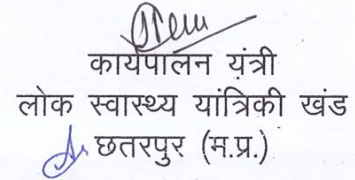 कार्यपालन यंत्री
लोक स्वास्थ्य यांत्रिकी खंड
छतरपुर (म.प्र.)